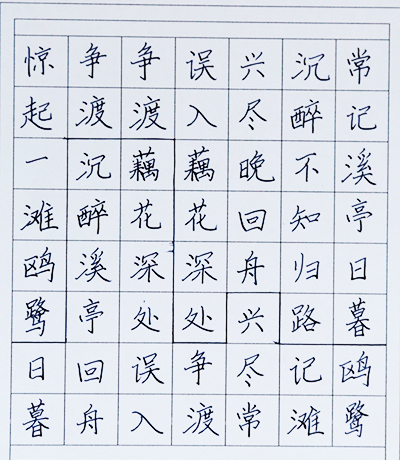 常记溪亭日暮鸥鹭
沉醉不知归路记滩
兴尽晚回舟兴尽常
误入藕花深处争渡
争渡藕花深处误入
争渡沉醉溪亭回舟
惊起一滩鸥鹭日暮